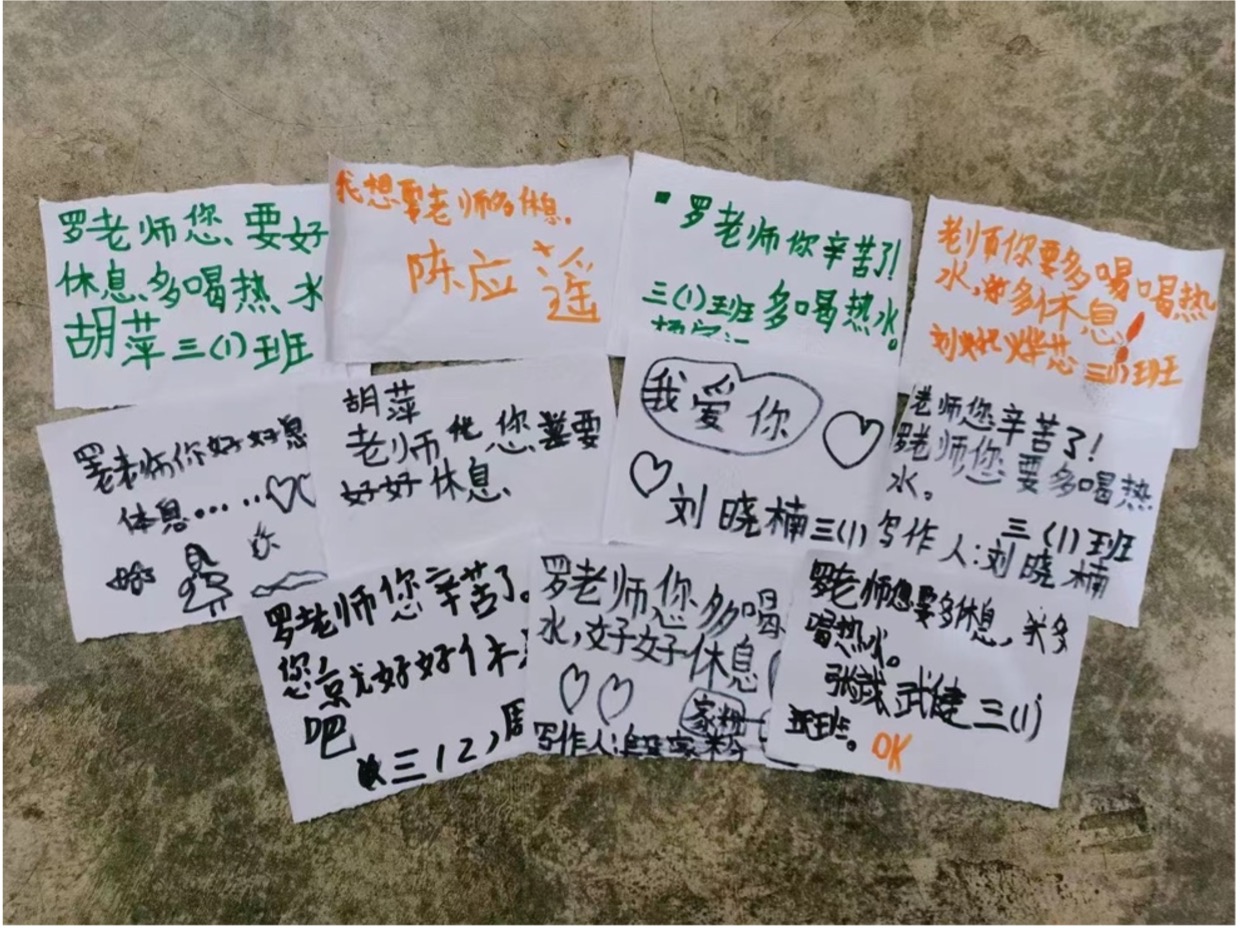 罗老师您、要好
休息、多喝热水
胡萍三(1)班
我想要老师多休息。
陈应遥
罗老师你辛苦了!
三(1)班多喝热水。
老师你要多喝喝热
水,多休息!
三(1)班
罗老师你好好息
休息……
胡萍
老师您要
好好休息、
我爱你
刘晓楠三(1)
老师您辛苦了!
罗老师您要多喝热
水。
三(1)班
写作人:刘晓楠
罗老师您辛苦了。
您就好好休
吧
三(2)周
罗老师您多喝
水,好好休息
家粉
写作人:段家粉
罗老师您要多休息,多
喝热水。
张武健三(1)
班。OK